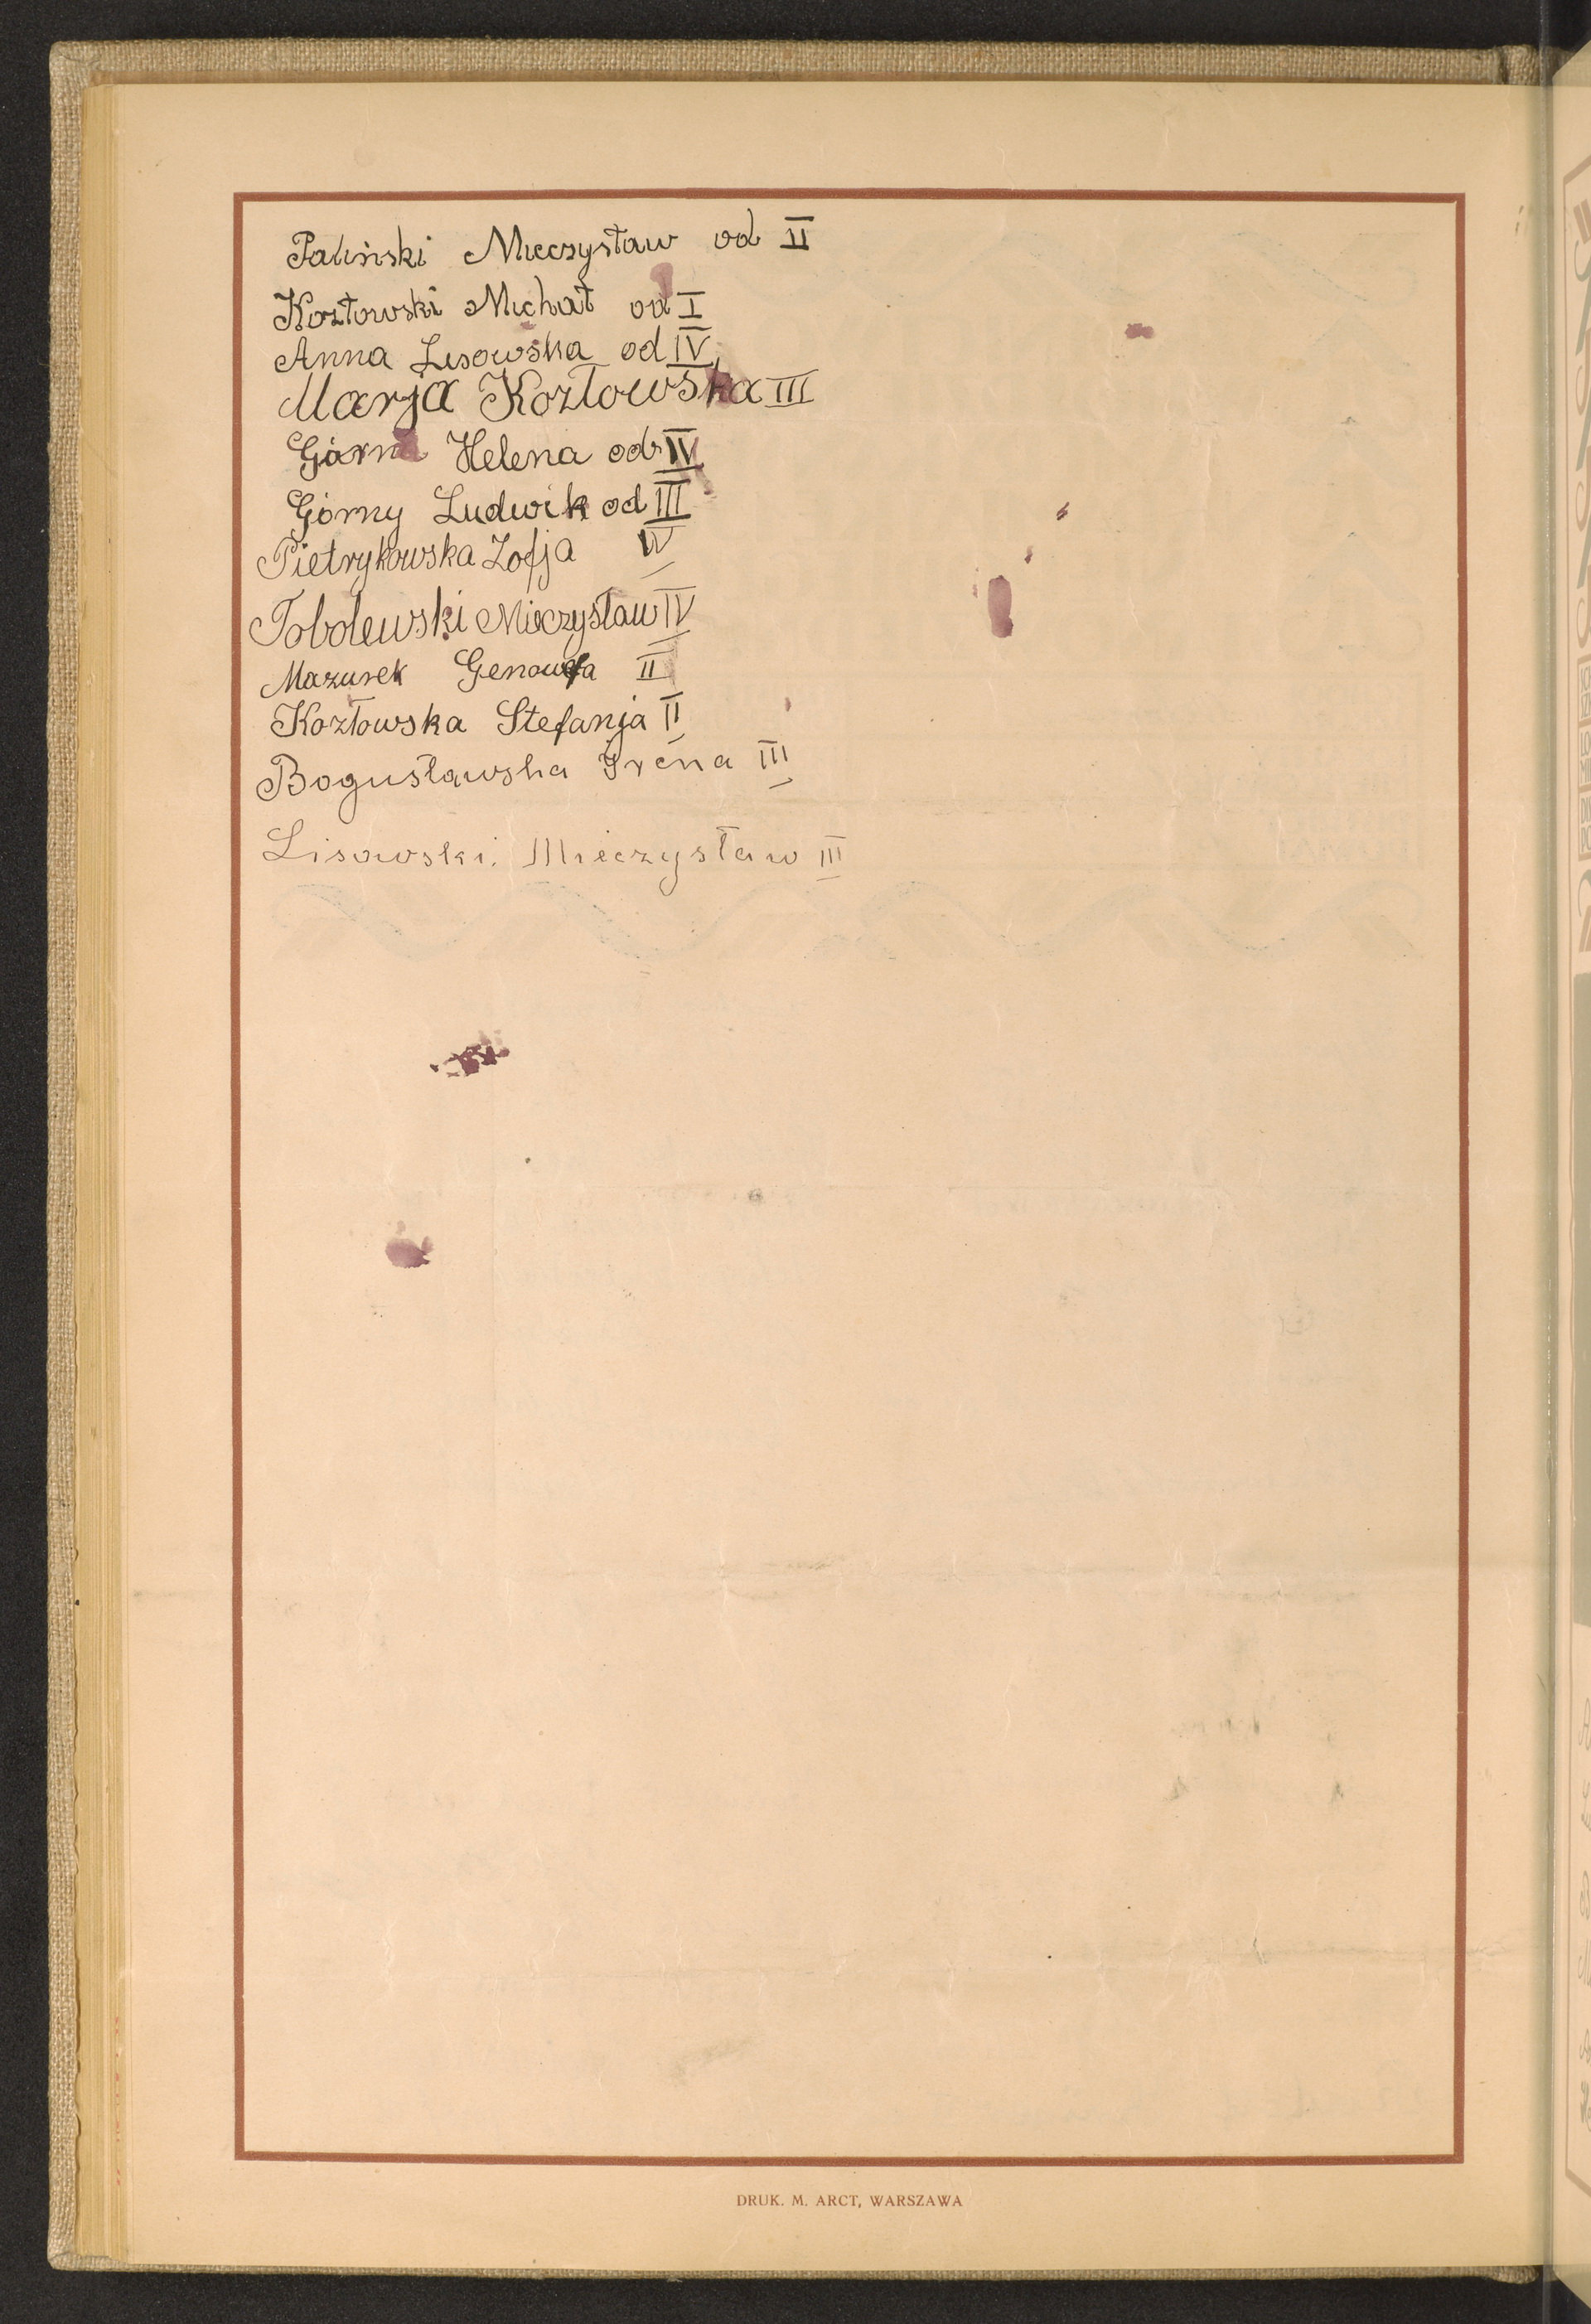 Paliński Mieczysław od II
Kozłowski Michał od I
Anna Lisowska od IV
Marja Kozłowska III
Górna Helena od IV
Górny Ludwik od III
Pietrykowska Zofja IV
Tobolewski Mieczysław IV
Mazurek Genowefa II
Kozłowska Stefanja II
Bogusławska Irena III
Lisowski Mieczysław III
DRUK. M. ARCT, WARSZAWA